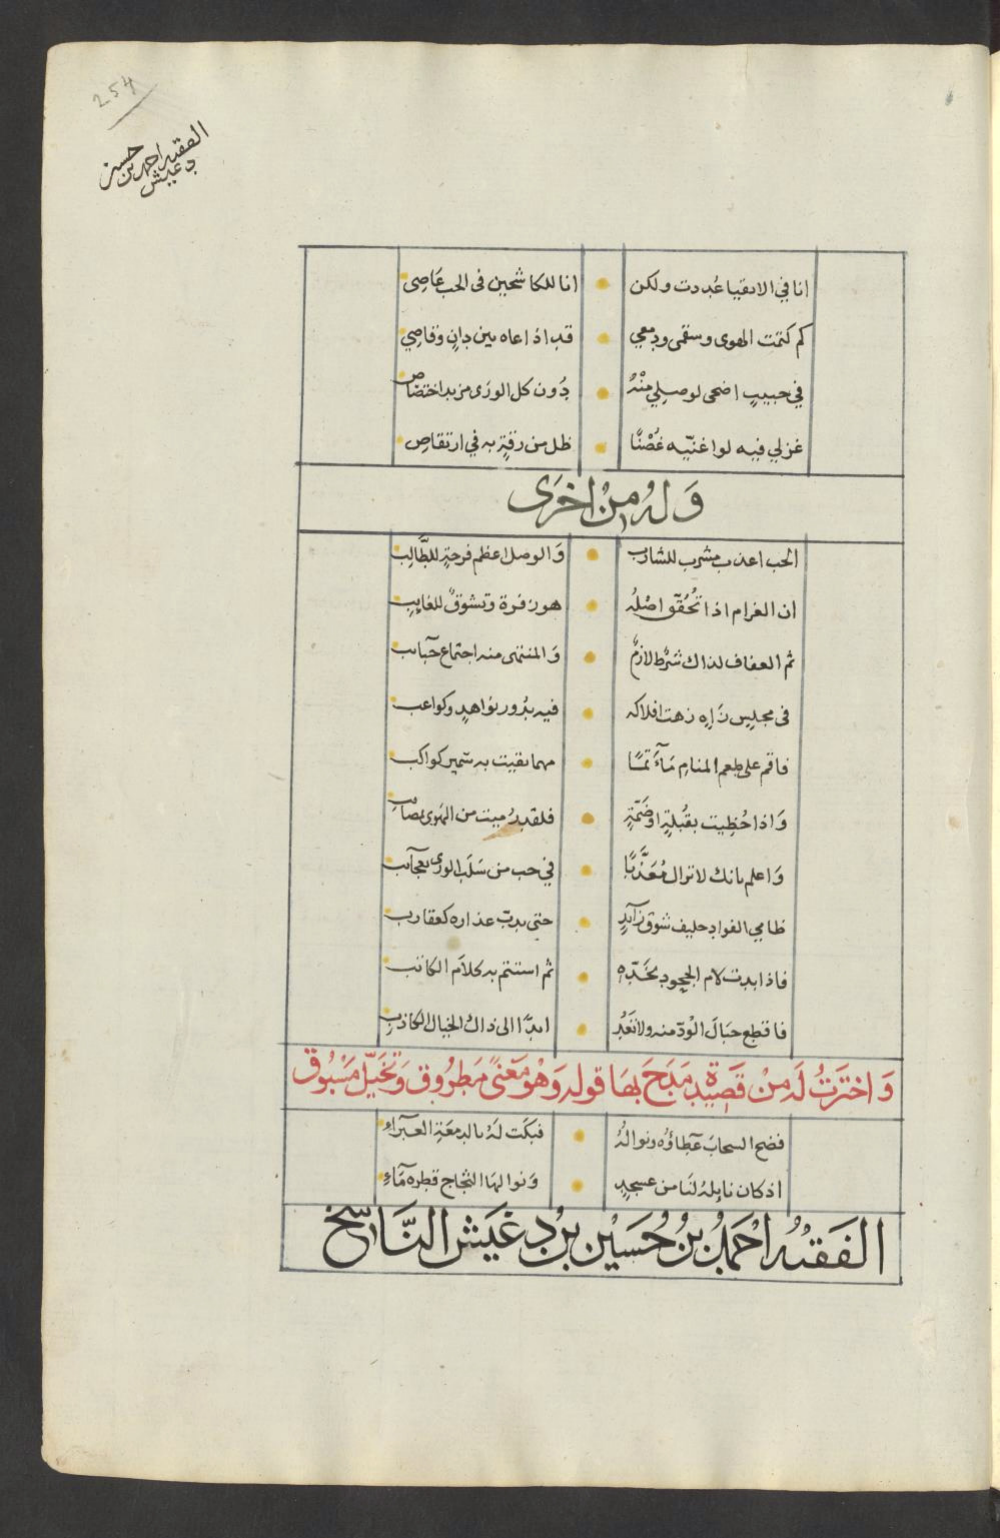 254
الفقيه احمد بن حسين
دغيش
انا في الاتقيا عُددت ولكن انا للكاشحين فى الحب عَاصِى
كم كتمت الهوى وسقمى ودمعي قد اذاعاه بين دانٍ وقاصِي
في حبيبٍ اضحى لوصلي منْهُ دُون كل الورَى مزيد اختصَاص
غزلي فيه لو اغنّيه غُصْنًا ظل من رقةٍ به في ارتقاصِ
وَلهُ مِنْ اخرَى
الحب اعذب مشرب للشارب وَالوصل اعظم فرحةٍ للطَّالِب
ان الغرام اذا تُحُقّق اصْلُه هو زفرة وتشوقٌ للغايبِ
ثم العفاف لذاك شرْط لازمٌ وَالمنتهى منه اجتماع حَبايب
فى مجلِس زَاهٍ زهت افلاكه فيه بدُور نواهدٍ وكواعب
فاقم على طعم المنام مَآتمًا مهما بقيت به سَمير كواكب
وَاذا حُظِيت بقُبلةٍ اوضَمّةٍ فلقد رُميت من الهَوى بصَايب
وَاعلم بانك لا تزال مُعَذّبًا في حب من سَلَب الورى بعجَآئب
ظامي الفواد حليف شوق زآيدٍ حتى يدبّ عذاره كعقارب
فاذا بدت لام الجحود بخَدّهِ ثم استتم به كلاَم الكاتب
فاقطع حبَالَ الوُدّ منه ولا تعُد ابدًا الى ذاك الخيال الكاذب
وَاخترَتُ لَه مِنْ قصَيدةٍ مَدَحَ بهَا قوله وَهُو مَعْنًى مَطرُوق وَتَخيّل مَسْبُوق
فضح السحابَ عَطاؤُه ونوالهُ فبكَت لَهُ بالدمعَةِ العَبرآءِ
اذ كان نايلهُ لنَا من عسجدٍ وَنوالهَا الثجاج قطره مَآءِ
الفَقيْهُ احْمَدُ بنُ حُسَيْن بنْ دغَيَش النَّاسِخ